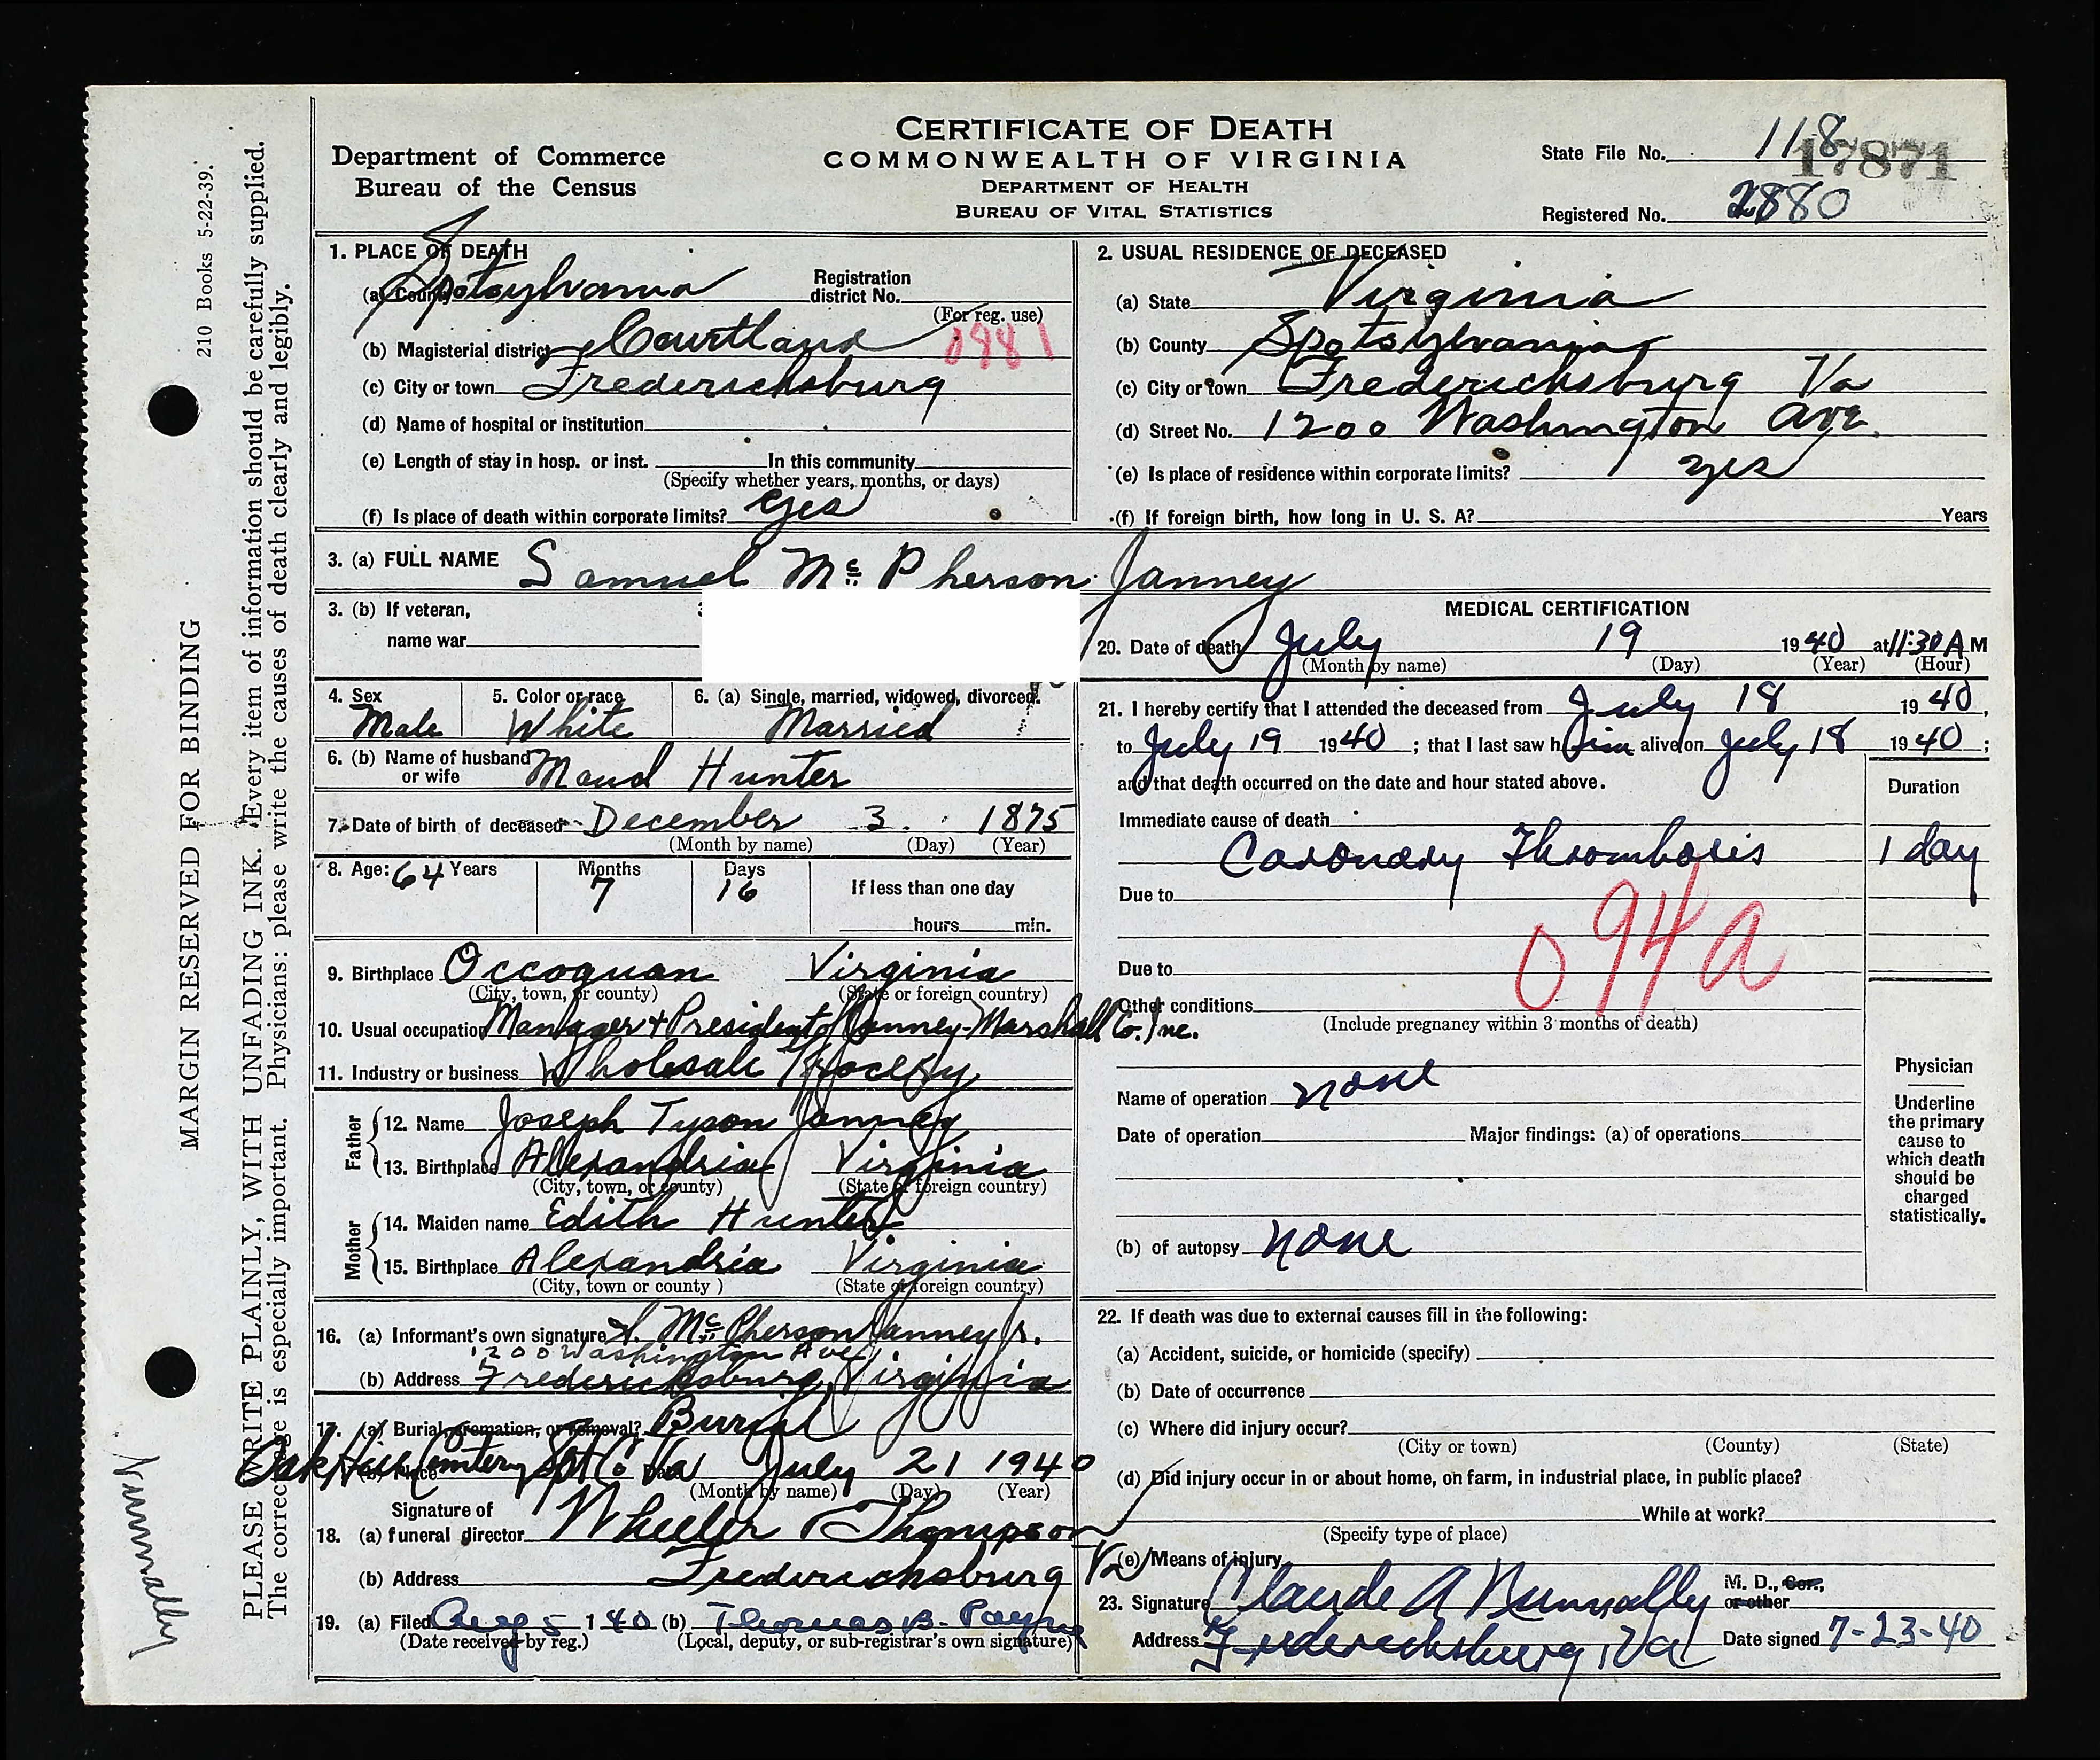 CERTIFICATE OF DEATH
COMMONWEALTH OF VIRGINIA
DEPARTMENT OF HEALTH
BUREAU OF VITAL STATISTICS
Department of Commerce
Bureau of the Census
State File No. 118
17871
Registered No. 2880
210 Books 5-22-39.
MARGIN RESERVED FOR BINDING
PLEASE WRITE PLAINLY, WITH UNFADING INK. Every item of information should be carefully supplied.
The correct age is especially important. Physicians: please write the causes of death clearly and legibly.
Nunnally
1. PLACE OF DEATH
(a) County Spotsylvania Registration district No.
(For reg. use)
0981
(b) Magisterial district Courtland
(c) City or town Fredericksburg
(d) Name of hospital or institution
(e) Length of stay in hosp. or inst. In this community
(Specify whether years, months, or days)
(f) Is place of death within corporate limits? yes
2. USUAL RESIDENCE OF DECEASED
(a) State Virginia
(b) County Spotsylvania
(c) City or town Fredericksburg Va
(d) Street No. 1200 Washington Ave.
(e) Is place of residence within corporate limits? yes
(f) If foreign birth, how long in U. S. A? Years
3. (a) FULL NAME Samuel Mc Pherson Janney
3. (b) If veteran,
name war
4. Sex Male
5. Color or race White
6. (a) Single, married, widowed, divorced. Married
6. (b) Name of husband or wife Maud Hunter
7. Date of birth of deceased December 3 1875
(Month by name) (Day) (Year)
8. Age: 64 Years Months 7 Days 16 If less than one day
hours min.
9. Birthplace Occoquan Virginia
(City, town, or county) (State or foreign country)
10. Usual occupation Manager & President of Janney-Marshall Co. Inc.
11. Industry or business Wholesale Grocery
Father
12. Name Joseph Tyson Janney
13. Birthplace Alexandria Virginia
(City, town, or county) (State or foreign country)
Mother
14. Maiden name Edith Hunter
15. Birthplace Alexandria Virginia
(City, town or county ) (State or foreign country)
16. (a) Informant's own signature S. Mc Pherson Janney Jr.
1200 Washington Ave
(b) Address Fredericksburg, Virginia
17. (a) Burial, cremation, or removal? Burial
(b) Place Oak Hill Cemetery Spt Co Va Date July 21 1940
(Month by name) (Day) (Year)
Signature of
18. (a) funeral director Wheeler & Thompson
(b) Address Fredericksburg Va
19. (a) Filed Aug 5 1940 (b) Thomas B. Payne
(Date received by reg.) (Local, deputy, or sub-registrar's own signature)
MEDICAL CERTIFICATION
20. Date of death July 19 1940 at 11:30 A M
(Month by name) (Day) (Year) (Hour)
21. I hereby certify that I attended the deceased from July 18 1940,
to July 19 1940 ; that I last saw him alive on July 18 1940 ;
and that death occurred on the date and hour stated above.
Duration
Immediate cause of death
Coronary Thrombosis 1 day
Due to
094a
Due to
Other conditions
(Include pregnancy within 3 months of death)
Name of operation none
Date of operation Major findings: (a) of operations
(b) of autopsy none
Physician
Underline
the primary
cause to
which death
should be
charged
statistically.
22. If death was due to external causes fill in the following:
(a) Accident, suicide, or homicide (specify)
(b) Date of occurrence
(c) Where did injury occur?
(City or town) (County) (State)
(d) Did injury occur in or about home, on farm, in industrial place, in public place?
While at work?
(Specify type of place)
(e) Means of injury
23. Signature Claude A Nunnally M. D., Cor., or other
Address Fredericksburg, Va Date signed 7-23-40